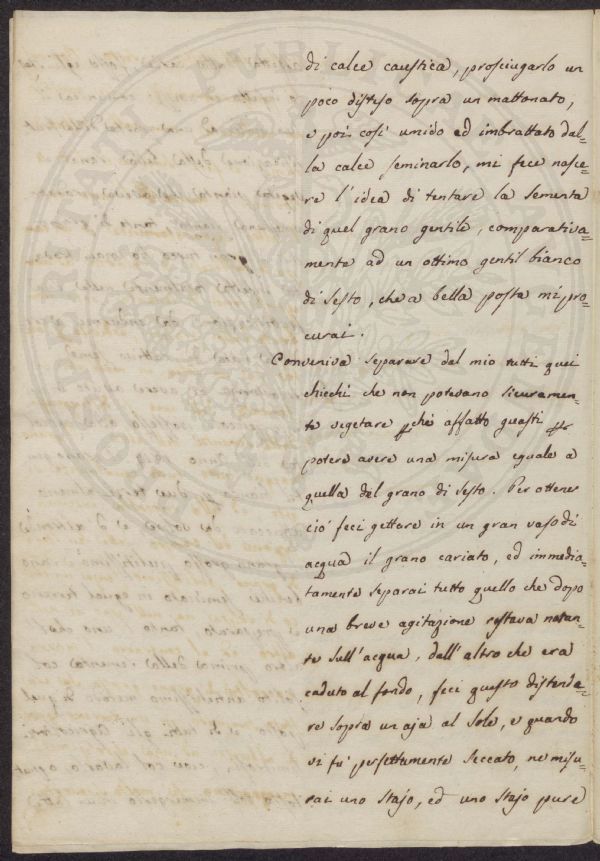 di calce caustica, prosciugarlo un
poco disteso sopra un mattonato,
e poi così umido ed imbrattato dal=
la calce seminarlo, mi fece nasce=
re l'idea di tentare la sementa
di quel grano gentile, comparativa=
mente ad un ottimo gentil bianco
di Sesto, che a bella posta mi pro=
curai.
Conveniva separare dal mio tutti quei
chicchi che non potevano sicuramen=
te vegetare perchè affatto guasti per
potere avere una misura eguale a
quella del grano di Sesto. Per ottener
ciò feci gettare in un gran vaso di
acqua il grano cariato, ed immedia=
tamente separai tutto quello che dopo
una breve agitazione restava notan=
te sull'acqua, dall'altro che era
caduto al fondo, feci questo distende=
re sopra un aja al sole, e quando
vi fù perfettamente seccato, ne misu=
rai uno stajo, ed uno stajo pure